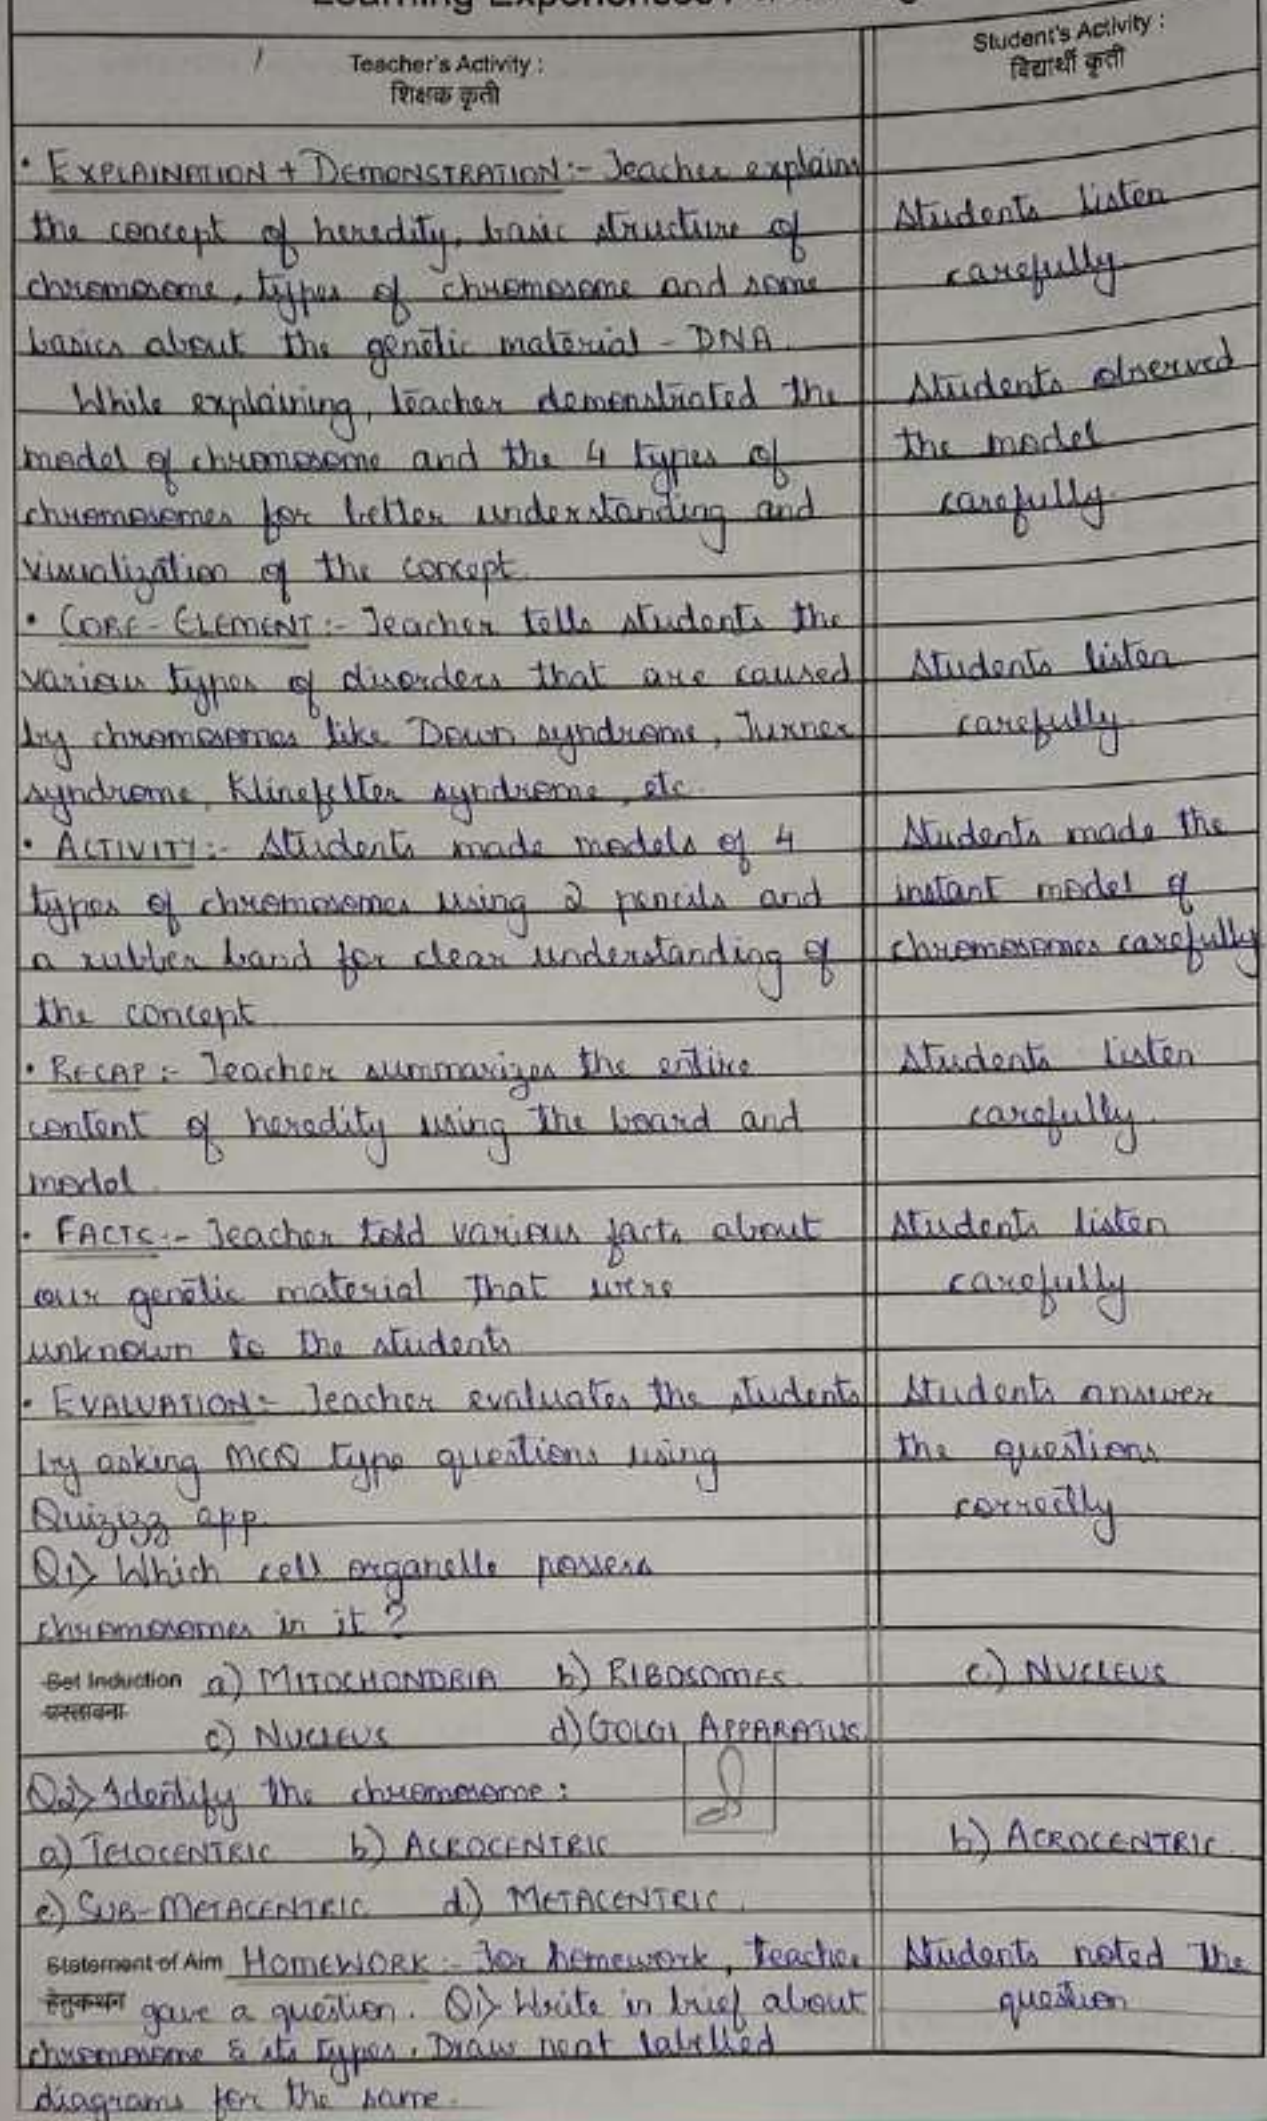 Teacher's Activity :
शिक्षक कृती
Student's Activity :
विद्यार्थी कृती
• EXPLAINATION + DEMONSTRATION :- Teacher explains
the concept of heredity, basic structure of
chromosome, types of chromosome and some
basics about the genetic material - DNA.
While explaining, teacher demonstrated the
model of chromosome and the 4 types of
chromosomes for better understanding and
visualization of the concept.
• CORE - ELEMENT :- Teacher tells students the
various types of disorders that are caused
by chromosomes like Down syndrome, Turner
syndrome, Klinefelter syndrome, etc.
• ACTIVITY :- Students made models of 4
types of chromosomes using 2 pencils and
a rubber band for clear understanding of
the concept.
• RECAP :- Teacher summarizes the entire
content of heredity using the board and
model.
• FACTS :- Teacher told various facts about
our genetic material that were
unknown to the students
• EVALUATION :- Teacher evaluates the students
by asking MCQ type questions using
Quizizz app.
Q1> Which cell organelle possess
chromosomes in it ?
Set Induction a) MITOCHONDRIA b) RIBOSOMES.
प्रस्तावना
c) NUCLEUS d) GOLGI APPARATUS.
Q2> Identify the chromosome :
a) TELOCENTRIC b) ACROCENTRIC
c) SUB-METACENTRIC d) METACENTRIC.
Statement of Aim HOMEWORK :- For homework, teacher
हेतुकथन gave a question. Q1> Write in brief about
chromosome & its types. Draw neat labelled
diagrams for the same.
Students listen
carefully
Students observed
the model
carefully.
Students listen
carefully.
Students made the
instant model of
chromosomes carefully
Students listen
carefully.
Students listen
carefully
Students answer
the questions
correctly
c) NUCLEUS
b) ACROCENTRIC.
Students noted the
question